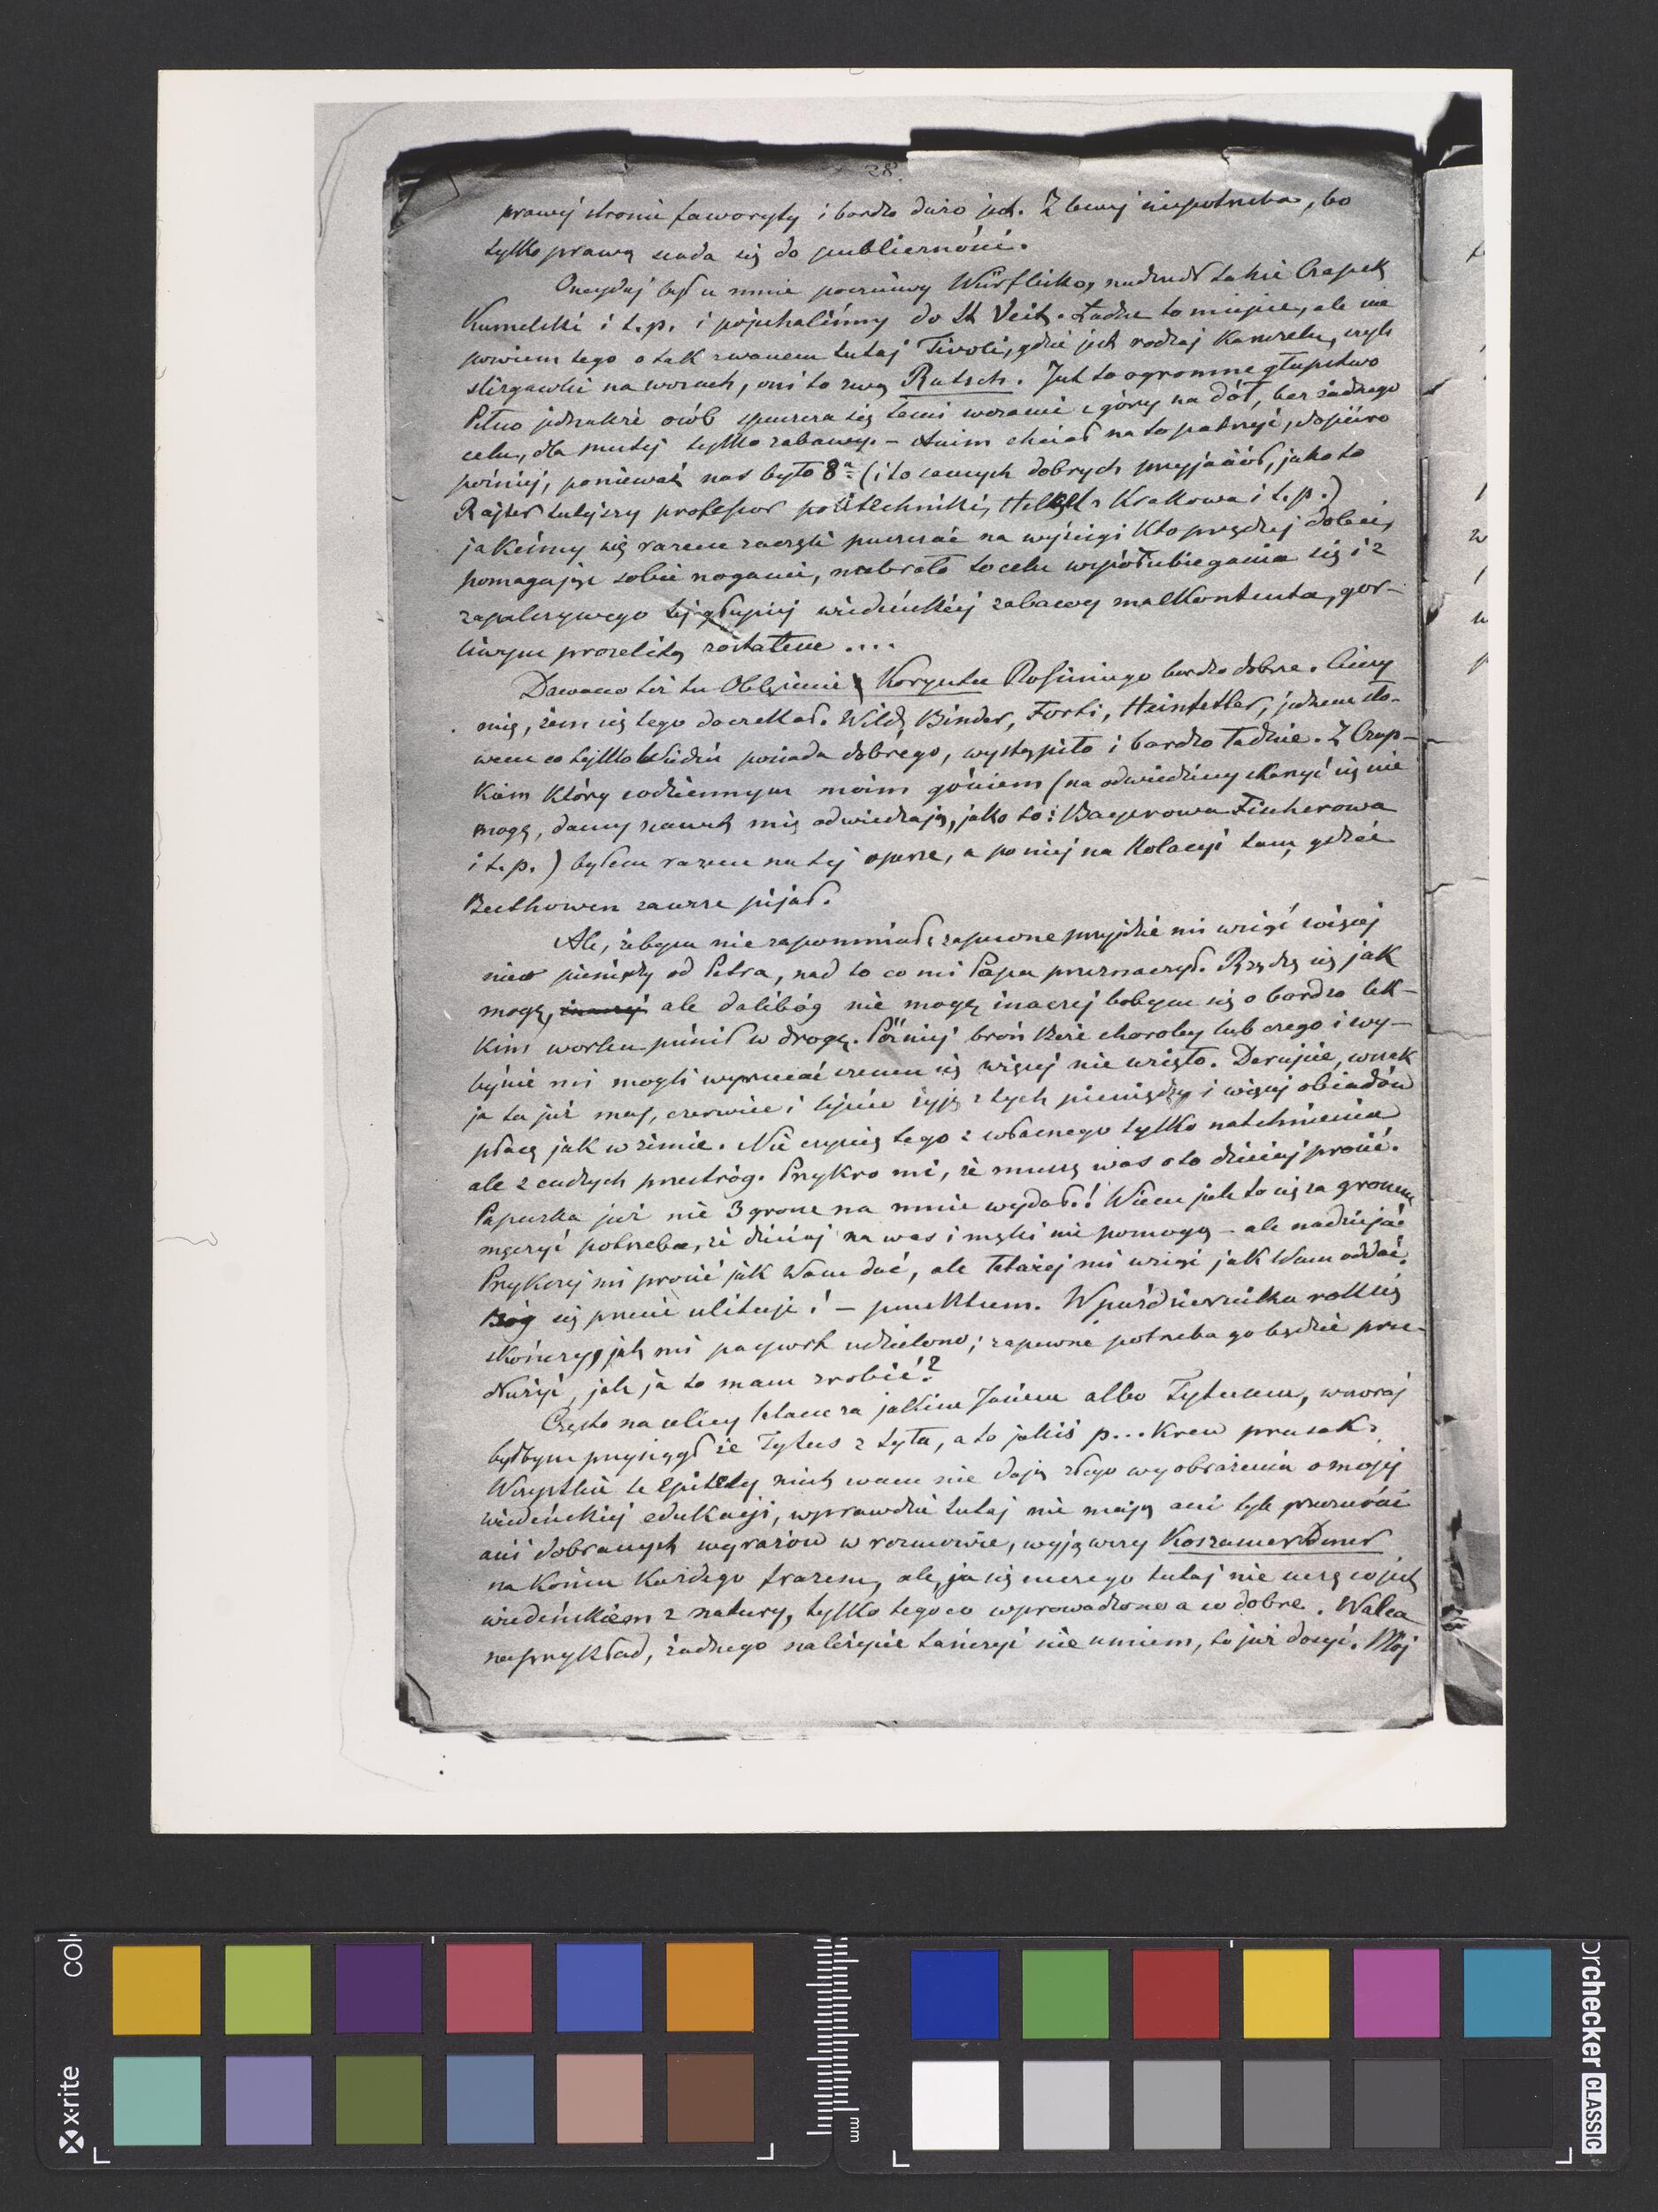 28.
prawej stronie faworyty i bardzo dużo jest. Z lewej niepotrzeba, bo
tylko prawą siada się do publiczności.
Onegdaj był u mnie poczciwy Würflisko, nadszedł także Czapek
Kumelski i t.p. i pojechaliśmy do St Veit. Ładne to miejsce, ale nie
powiem tego o tak zwanem tutaj Tivoli, gdzie jest rodzaj Karuzelu, czyli
ślizgawki na wozach, oni to zwą Rutsch. Jest to ogromne głupstwo
Pełno jednakże osób spuszcza się temi wozami z góry na dół, bez żadnego
celu, dla pustej tylko zabawy. – Anim chciał na to patrzyć, dopiero
później, ponieważ nas było 8u (i to samych dobrych przyjaciół, jako to
Rajter tutejszy profesor politechniki, Helkel z Krakowa i t.p.)
jakeśmy się razem zaczęli puszczać na wyścigi kto prędzej doleci,
pomagając sobie nogami, nabrało to celu współubiegania się i z
zapalczywego tej głupiej wiedeńskiej zabawy malkontenta, gor-
liwym prozelitą zostałem ....
Dawano też tu Oblężenie Koryntu Rossiniego bardzo dobrze. Cieszy
mię, żem się tego doczekał. Wild, Binder, Forti, Heinfetter, jednem sło-
wem co tylko Wiedeń posiada dobrego, wystąpiło i bardzo ładnie. Z Czap-
kiem który codziennym moim gościem (na odwiedziny skarżyć się nie
mogę, damy nawet mię odwiedzają, jako to: Bayerowa Fischerowa
i t.p.) byłem razem na tej operze, a po niej na kolacyi tam, gdzie
Beethowen zawsze pijał.
Ale, żebym nie zapomniał, zapewne przyjdzie mi wziąć więcej
nieco pieniędzy od Petra, nad to co mi Papa przeznaczył. Rządzę się jak
mogę, ale dalibóg nie mogę inaczej bobym się o bardzo lek-
kim worku puścił w drogę. Później broń Boże choroby lub czego i wy-
byście mi mogli wyrzucać czemu się więcej nie wzięło. Darujcie, wszak
ja tu już maj, czerwiec i lipiec żyję z tych pieniędzy i więcej obiadów
płacę jak w zimie. Nie czynię tego z własnego tylko natchnienia
ale z cudzych przestróg. Przykro mi, że muszę was o to dzisiaj prosić.
Papuzka już nie 3 grosze na mnie wydał! Wiem jak to się za groszem
męczyć potrzeba, że dzisiaj na was i męki nie pomogą – ale nadziejać
Przykrzej mi prosić jak Wam dać, ale łatwiej mi wziąć jak Wam oddać.
Bóg się przecie ulituje! – punktum. W październiku rok się
skończy, jak mi paszport udzielono; zapewne potrzeba go będzie prze-
dłużyć, jak ja to mam zrobić?
Często na ulicy latam za jakim Jasiem albo Tytusem, wczoraj
byłbym przysiągł że Tytus z tyłu, a to jakiś p... krew prusak.
Wszystkie te epitety niech wam nie dają złego wyobrażenia o mojej
wiedeńskiej edukacyi, wprawdzie tutaj nie mają ani tyle grzeczności
ani dobranych wyrazów w rozmowie, wyjąwszy KoszamerDiner
na końcu każdego frazesu, ale, ja się niczego tutaj nie uczę co jest
wiedeńskiem z natury, tylko tego co wprowadzone a co dobre. Walca
naprzykład, żadnego należycie tańczyć nie umiem, to już dosyć. Mój